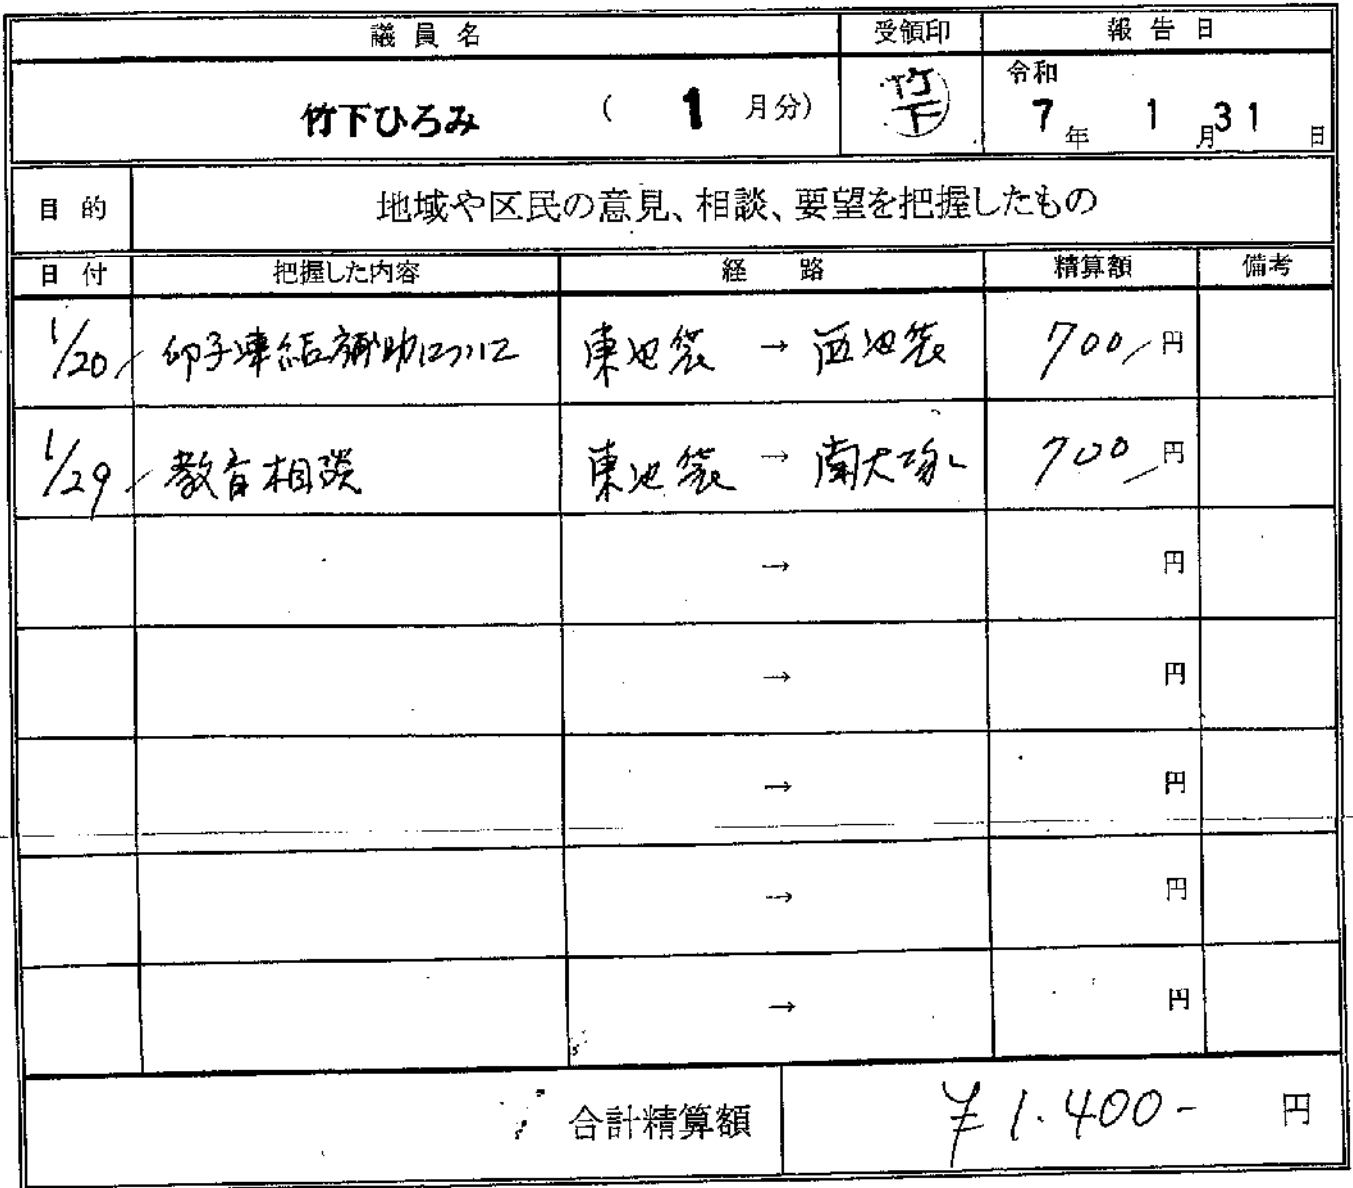 議員名 受領印 報告日
竹下ひろみ ( 1 月分) 竹下 令和 7 年 1 月 31 日
目的 地域や区民の意見、相談、要望を把握したもの
日付 把握した内容 経路 精算額 備考
1/20 卵子凍結補助について 東池袋 → 西池袋 700 円
1/29 教育相談 東池袋 → 南大塚 700 円
→ 円
→ 円
→ 円
→ 円
→ 円
合計精算額 ¥1.400- 円